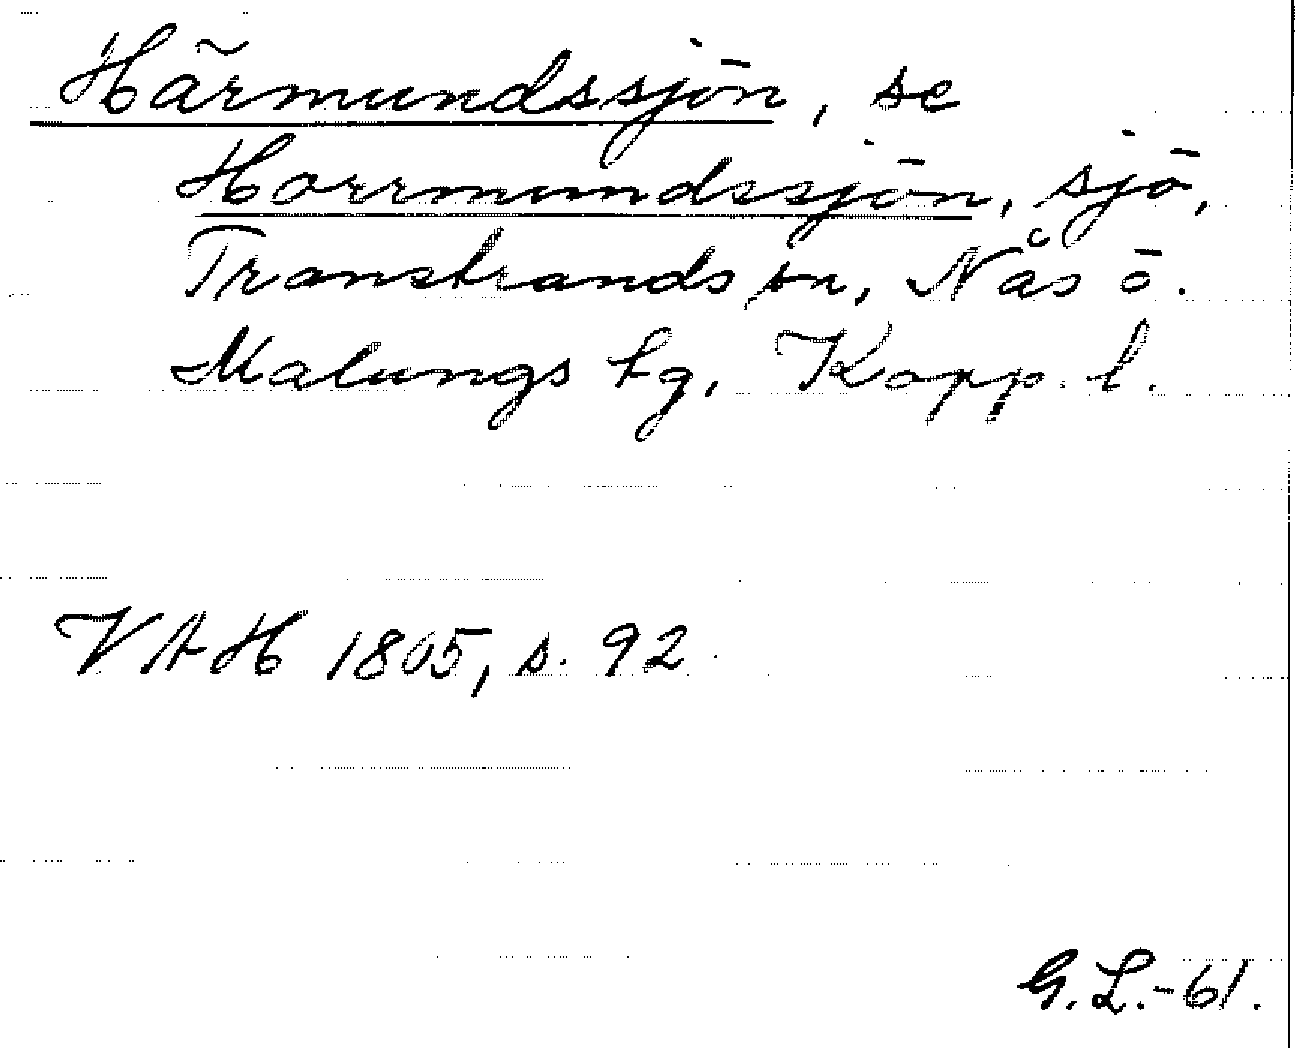 Härmundssjön, se
Horrmundssjön, sjö,
Transtrands sn, Nås ö.
Malungs tg, Kopp. l.
VAH 1805, s. 92
G. L.-61.